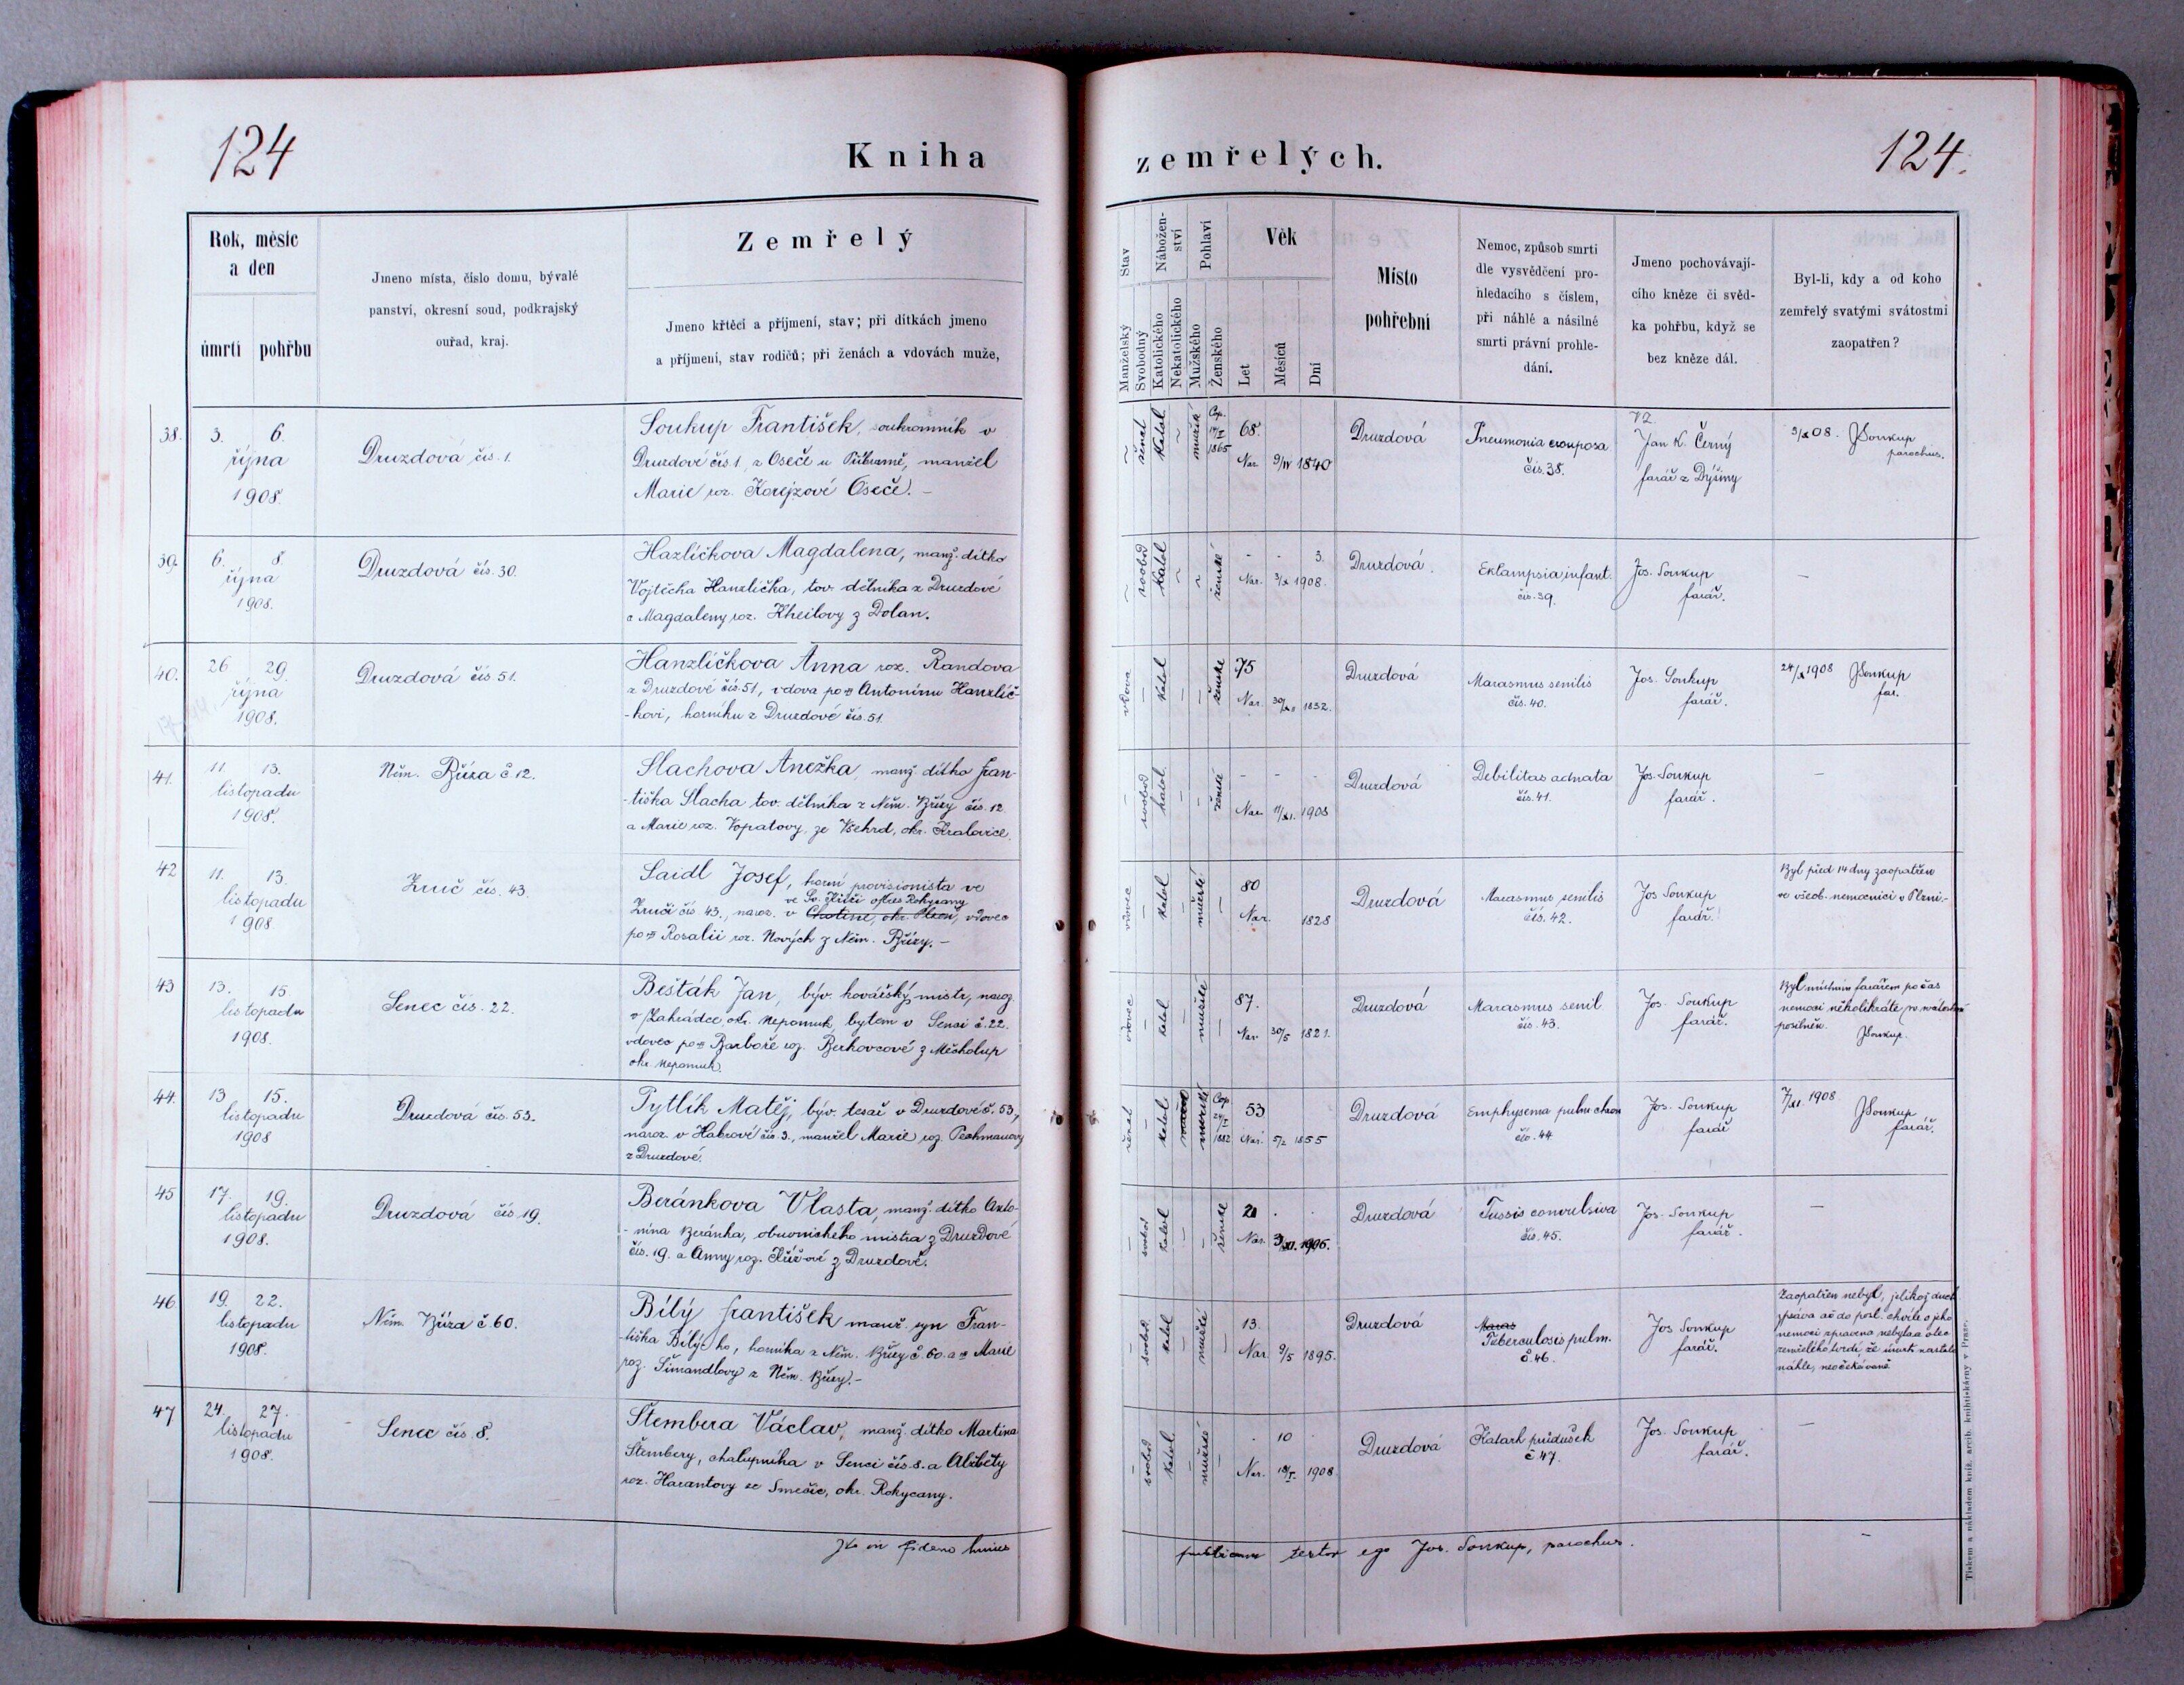 124
Kniha
zemřelých.
124.
Rok, měsíc
a den
úmrtí
pohřbu
Jmeno místa, číslo domu, bývalé
panství, okresní soud, podkrajský
ouřad, kraj.
Zemřelý
Jmeno křtěcí a příjmení, stav; při dítkách jmeno
a příjmení, stav rodičů; při ženách a vdovách muže,
Stav
Manželský
Svobodný
Nábožen-
ství
Katolického
Nekatolického
Pohlaví
Mužského
Ženského
Věk
Let
Měsíců
Dní
Místo
pohřební
Nemoc, způsob smrti
dle vysvědčení pro-
hledacího s číslem,
při náhlé a násilné
smrti právní prohle-
dání.
Jmeno pochovávají-
cího kněze či svěd-
ka pohřbu, když se
bez kněze dál.
Byl-li, kdy a od koho
zemřelý svatými svátostmi
zaopatřen?
38.
3. 6.
října
1908.
Druzdová čís. 1.
Soukup František, soukromník v
Druzdové čís. 1, z Oseče u Příbramě, manžel
Marie roz. Korejzové Oseče. –
ženat
katol.
mužské
Cop.
1865
68.
Nar. 9/IV 1840
Druzdová
Pneumonia crouposa
čís. 38.
Jan K. Černý
farář z Dýšiny
3/X 08. JSoukup
parochus.
39.
6. 8.
října
1908.
Druzdová čís. 30.
Hazlíčkova Magdalena, manž. dítko
Vojtěcha Hanzlíčka, tov. dělníka z Druzdové
a Magdaleny roz. Kheilovy z Dolan.
svobod
katol
ženské
- - 3.
Nar. 3/X 1908.
Druzdová.
Eklampsia infant.
čís. 39.
Jos. Soukup
farář.
–
40.
26 29.
října
1908.
Druzdová čís 51.
Hanzlíčkova Anna roz. Randova
z Druzdové čís. 51, vdova po Antonínu Hanzlíč-
-kovi, horníku z Druzdové čís. 51
vdova
katol
ženské
75
Nar. 1832.
Druzdová
Marasmus senilis
čís. 40.
Jos. Soukup
farář.
24/X 1908 JSoukup
far.
41.
11. 13.
listopadu
1908.
Něm. Bříza č 12.
Slachova Anežka, manž. dítko Fran-
-tiška Slacha tov. dělníka z Něm. Břízy čís. 12
a Marie roz. Vopatovy, ze Všehrd, okr. Kralovice.
svobod
katol.
ženské
- - -
Nar. 11/XI. 1908
Druzdová
Debilitas adnata
čís. 41.
Jos. Soukup
farář.
–
42
11. 13.
listopadu
1908
Zruč čís. 43.
Saidl Josef, horní provisionista ve
ve Sv. Jiří okres Rokycany
Zruči čís 43., naroz. v Chotině, okr. Plzeň, vdovec
po Rosalii roz. Nových z Něm. Břízy. –
vdovec
katol
mužské
80
Nar. 1828
Druzdová
Marasmus senilis
čís. 42.
Jos Soukup
farář.
Byl před 14 dny zaopatřen
ve všeob. nemocnici v Plzni.-
43
13. 15.
listopadu
1908.
Senec čís. 22.
Bešták Jan, býv. kovářský mistr, naroz.
v Zahrádce, okr. Nepomuk, bytem v Senci č. 22.
vdovec po Barboře roz. Berkovcové z Měcholup
okr. Nepomuk.
vdovec
katol
mužské
87.
Nar 30/5 1821.
Druzdová
Marasmus senil
čís. 43.
Jos. Soukup
farář.
Byl místním farářem po čas
nemoci několikráte sv. svátostmi
posilněn.
JSoukup.
44.
13 15.
listopadu
1908
Druzdová čís. 53.
Pytlík Matěj, býv. tesař v Druzdové č. 53,
naroz. v Habrové čís. 3., manžel Marie roz. Pechmanovy
z Druzdové.
ženat
katol
mužské
Cop
1882
53
Nar. 5/2 1855
Druzdová
Emphysema pulm chron
čís. 44
Jos. Soukup
farář
7/XI 1908 JSoukup
farář.
45
17. 19.
listopadu
1908.
Druzdová čís 19.
Beránkova Vlasta, manž. dítko Anto-
-nína Beránka, obuvnického mistra z Druzdové
čís. 19. a Anny roz. z Druzdové.
svobod
katol
ženské
2
Nar. 3/XI. 1906.
Druzdová
Tussis convulsiva
čís. 45.
Jos. Soukup
farář.
–
46
19. 22.
listopadu
1908.
Něm. Bříza č. 60.
Bílý František manž. syn Fran-
-tiška Bílýho, horníka z Něm. Břízy č. 60. a Marie
roz. Šimandlovy z Něm. Břízy. –
svobod
katol
mužské
13.
Nar. 9/5 1895.
Druzdová
Maras
Tuberculosis pulm.
č. 46.
Jos Soukup
farář.
Zaopatřen nebyl, jelikož duch.
zpráva až do posl. chvíle o jeho
nemoci zpravena nebyla a otec
zemřelého tvrdí, že úmrtí nastalo
náhle, neočekávaně
47
24 27.
listopadu
1908.
Senec čís. 8.
Štembera Václav, manž. dítko Martina
Štembery, chalupníka v Senci čís. 8. a Alžběty
roz. Harantovy ze Smečic, okr. Rokycany.
svobod
katol
mužské
. 10 .
Nar. 18/I. 1908
Druzdová
Katarh průdušek
č 47.
Jos. Soukup
farář.
–
Ita in fidem huius
publicam testor ego Jos. Soukup, parochus.
Tiskem a nákladem kníž. arcib. knihtiskárny v Praze.